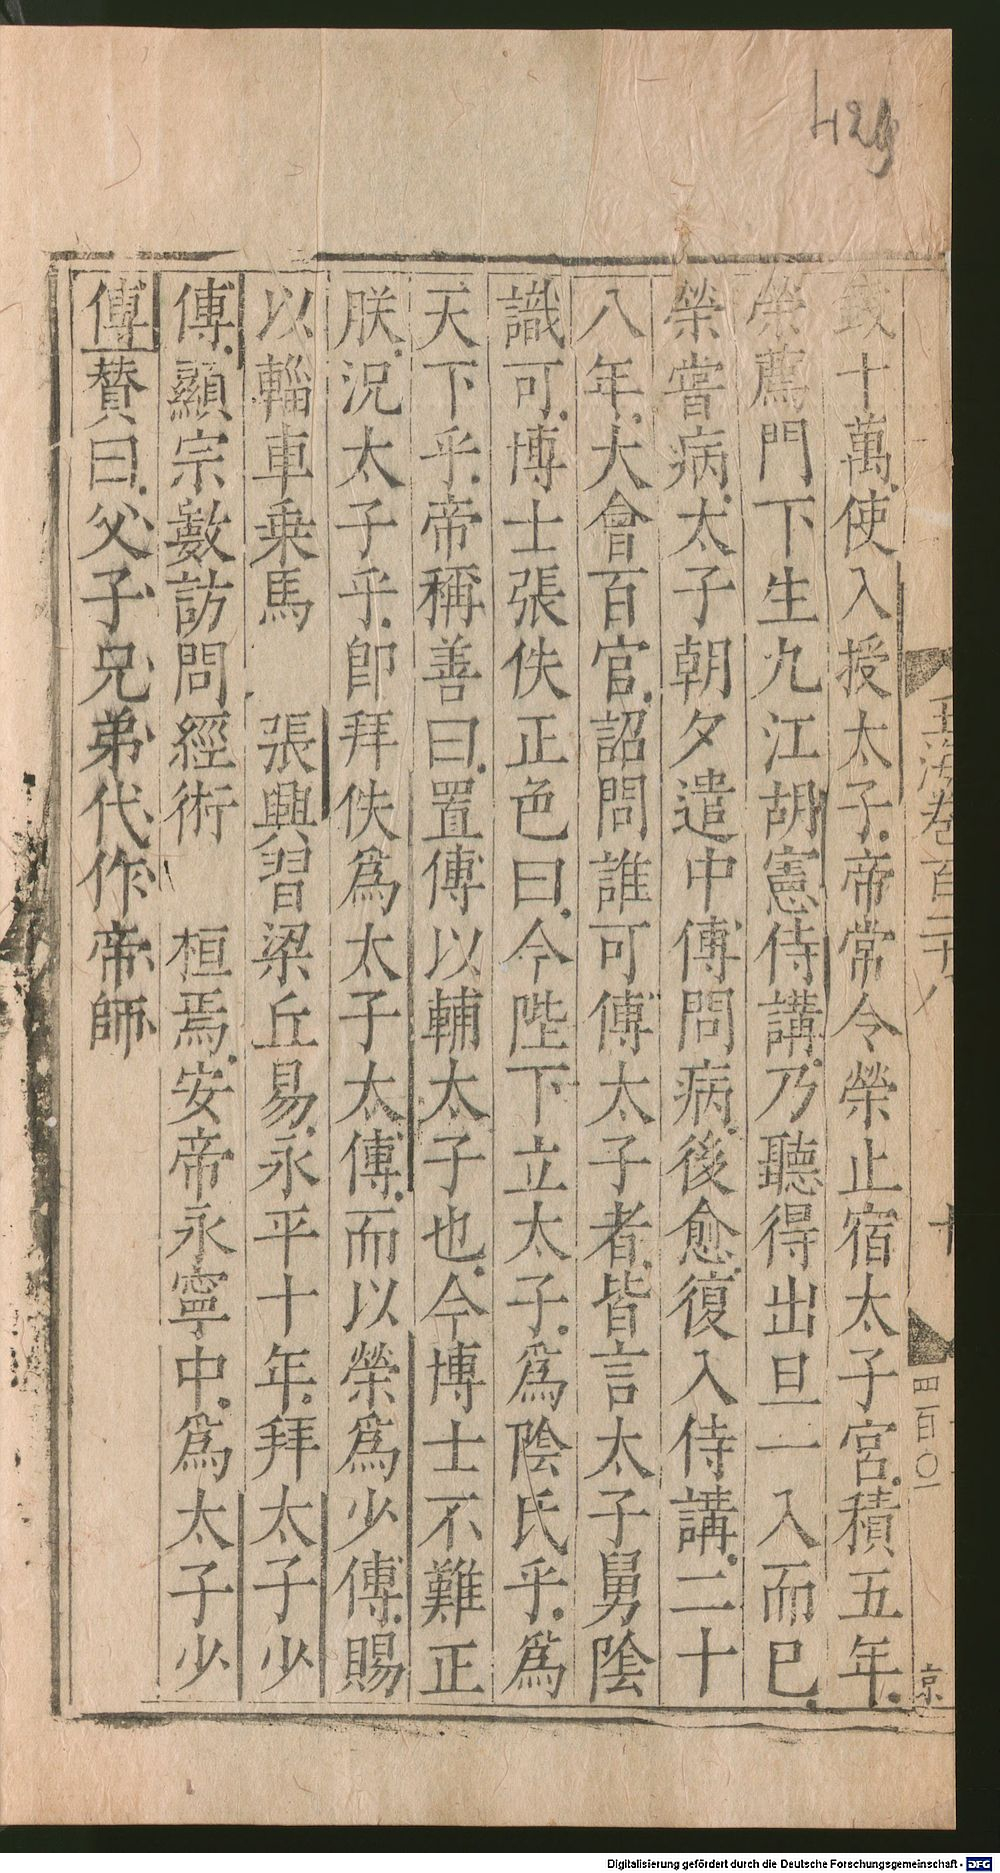 429
玉海卷百二十八
十
四百〇一
京
錢十萬使入授太子帝常令榮止宿太子宮積五年
榮薦門下生九江胡憲侍講乃聽得出旦一入而已
榮嘗病太子朝夕遣中傅問病後愈復入侍講二十
八年大會百官詔問誰可傅太子者皆言太子舅陰
識可博士張佚正色曰今陛下立太子爲陰氏乎爲
天下乎帝稱善曰置傅以輔太子也今博士不難正
朕況太子乎卽拜佚爲太子太傅而以榮爲少傅賜
以輜車乘馬　張興習梁丘易永平十年拜太子少
傅顯宗數訪問經術　桓焉安帝永寧中爲太子少
傅贊曰父子兄弟代作帝師
Digitalisierung gefördert durch die Deutsche Forschungsgemeinschaft - DFG